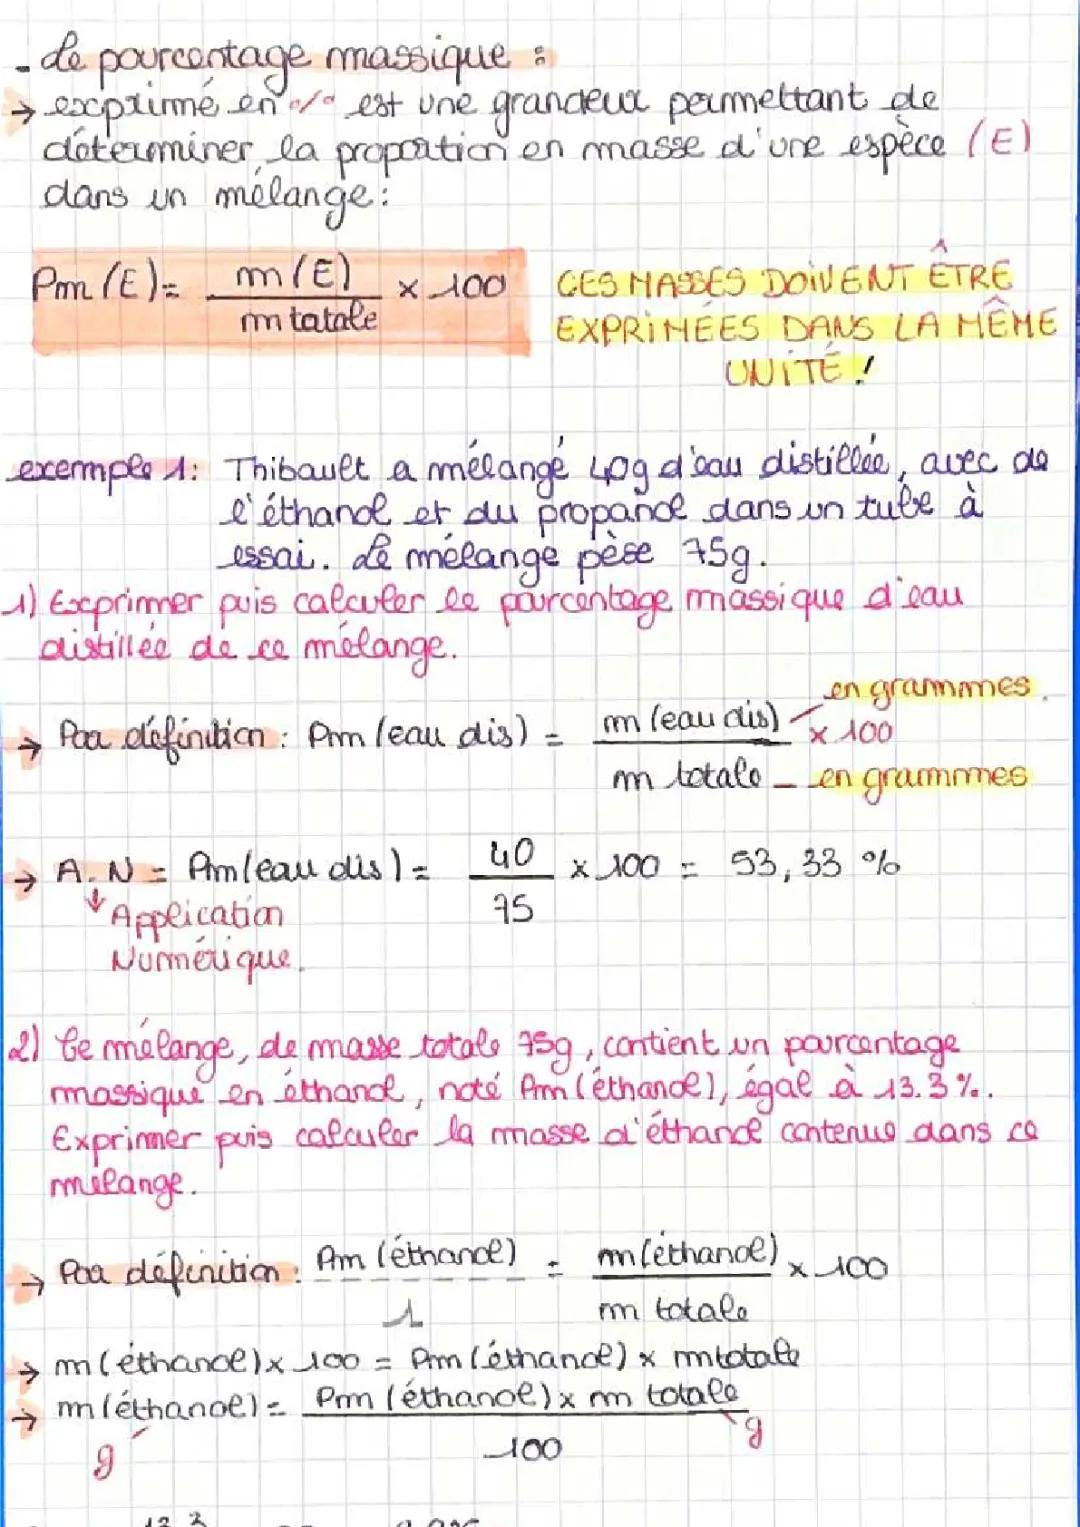 - Le pourcentage massique :
→ exprimé en % est une grandeur permettant de
déterminer la proportion en masse d'une espèce (E)
dans un mélange :
Pm (E) = m (E) / m totale × 100
CES MASSES DOIVENT ÊTRE
EXPRIMÉES DANS LA MÊME
UNITÉ !
exemple 1 : Thibault a mélangé 40g d'eau distillée, avec de
l'éthanol et du propanol dans un tube à
essai. Le mélange pèse 75g.
1) Exprimer puis calculer le pourcentage massique d'eau
distillée de ce mélange.
en grammes
→ Par définition : Pm (eau dis) = m (eau dis) / m totale × 100
en grammes
→ A.N = Pm (eau dis) = 40 / 75 × 100 = 53,33 %
↓ Application
Numérique.
2) Ce mélange, de masse totale 75g, contient un pourcentage
massique en éthanol, noté Pm (éthanol), égal à 13.3%.
Exprimer puis calculer la masse d'éthanol contenue dans ce
mélange.
→ Par définition : Pm (éthanol) / 1 = m (éthanol) / m totale × 100
→ m (éthanol) × 100 = Pm (éthanol) × m totale
→ m (éthanol) = Pm (éthanol) × m totale / 100
g
g